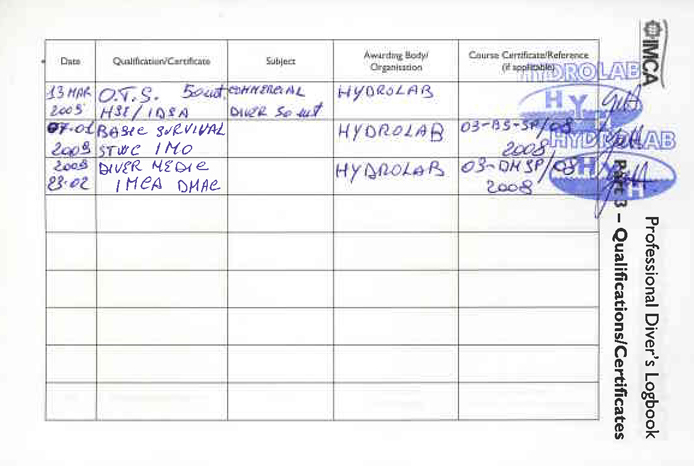 IMCA
Professional Diver's Logbook
Part 3 – Qualifications/Certificates
Date Qualification/Certificate Subject Awarding Body/Organisation Course Certificate/Reference (if applicable)
13 MAR O.T.S. 50 mt. COMMERCIAL HYDROLAB
HSE/IDSA DIVER 50 mt
07.01 BASIC SURVIVAL HYDROLAB 03-BS-SP/08
2008 STWC IMO 2008
2008 DIVER MEDIC HYDROLAB 03-DMSP/08
23.02 IMCA DMAC 2008
HYDROLAB
HYDROLAB